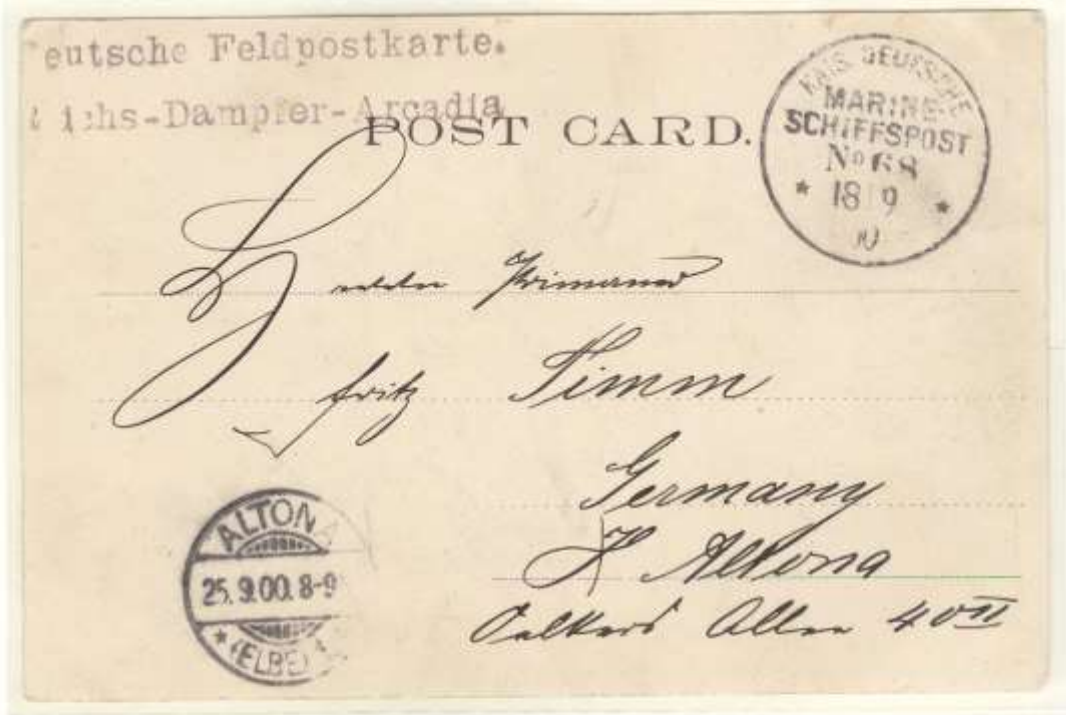 eutsche Feldpostkarte.
ichs-Dampfer-Arcadia
POST CARD.
KAIS. DEUTSCHE
MARINE-
SCHIFFSPOST
No 68
18 9
00
Primaner
Fritz Timm
Germany
Altona
Oelkers Allee 40 II
ALTONA
25.9.00. 8-9
(ELBE)